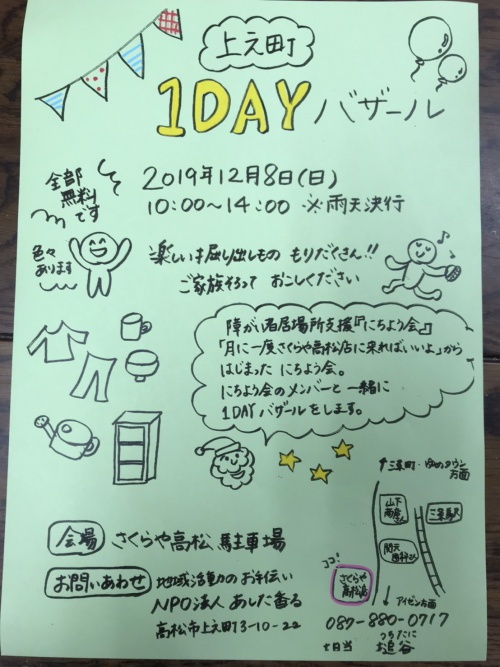 上之町
1DAYバザール
全部
無料
です
2019年12月8日(日)
10:00～14:00 ※雨天決行
色々
あります
楽しい掘り出しもの もりだくさん!!
ご家族そろって おこしください
障がい者居場所支援『にちよう会』
「月に一度さくらや高松店に来ればいいよ」から
はじまった にちよう会。
にちよう会のメンバーと一緒に
1DAYバザールをします。
↑三条町・ゆめタウン
方面
山下
商店さん
三条駅
ココ!
さくらや
高松店
↓アイゼン方面
会場 さくらや高松 駐車場
お問いあわせ 地域活動のお手伝い
NPO法人 あした香る
高松市上之町3-10-22
087-880-0717
つちたに
担当 槌谷